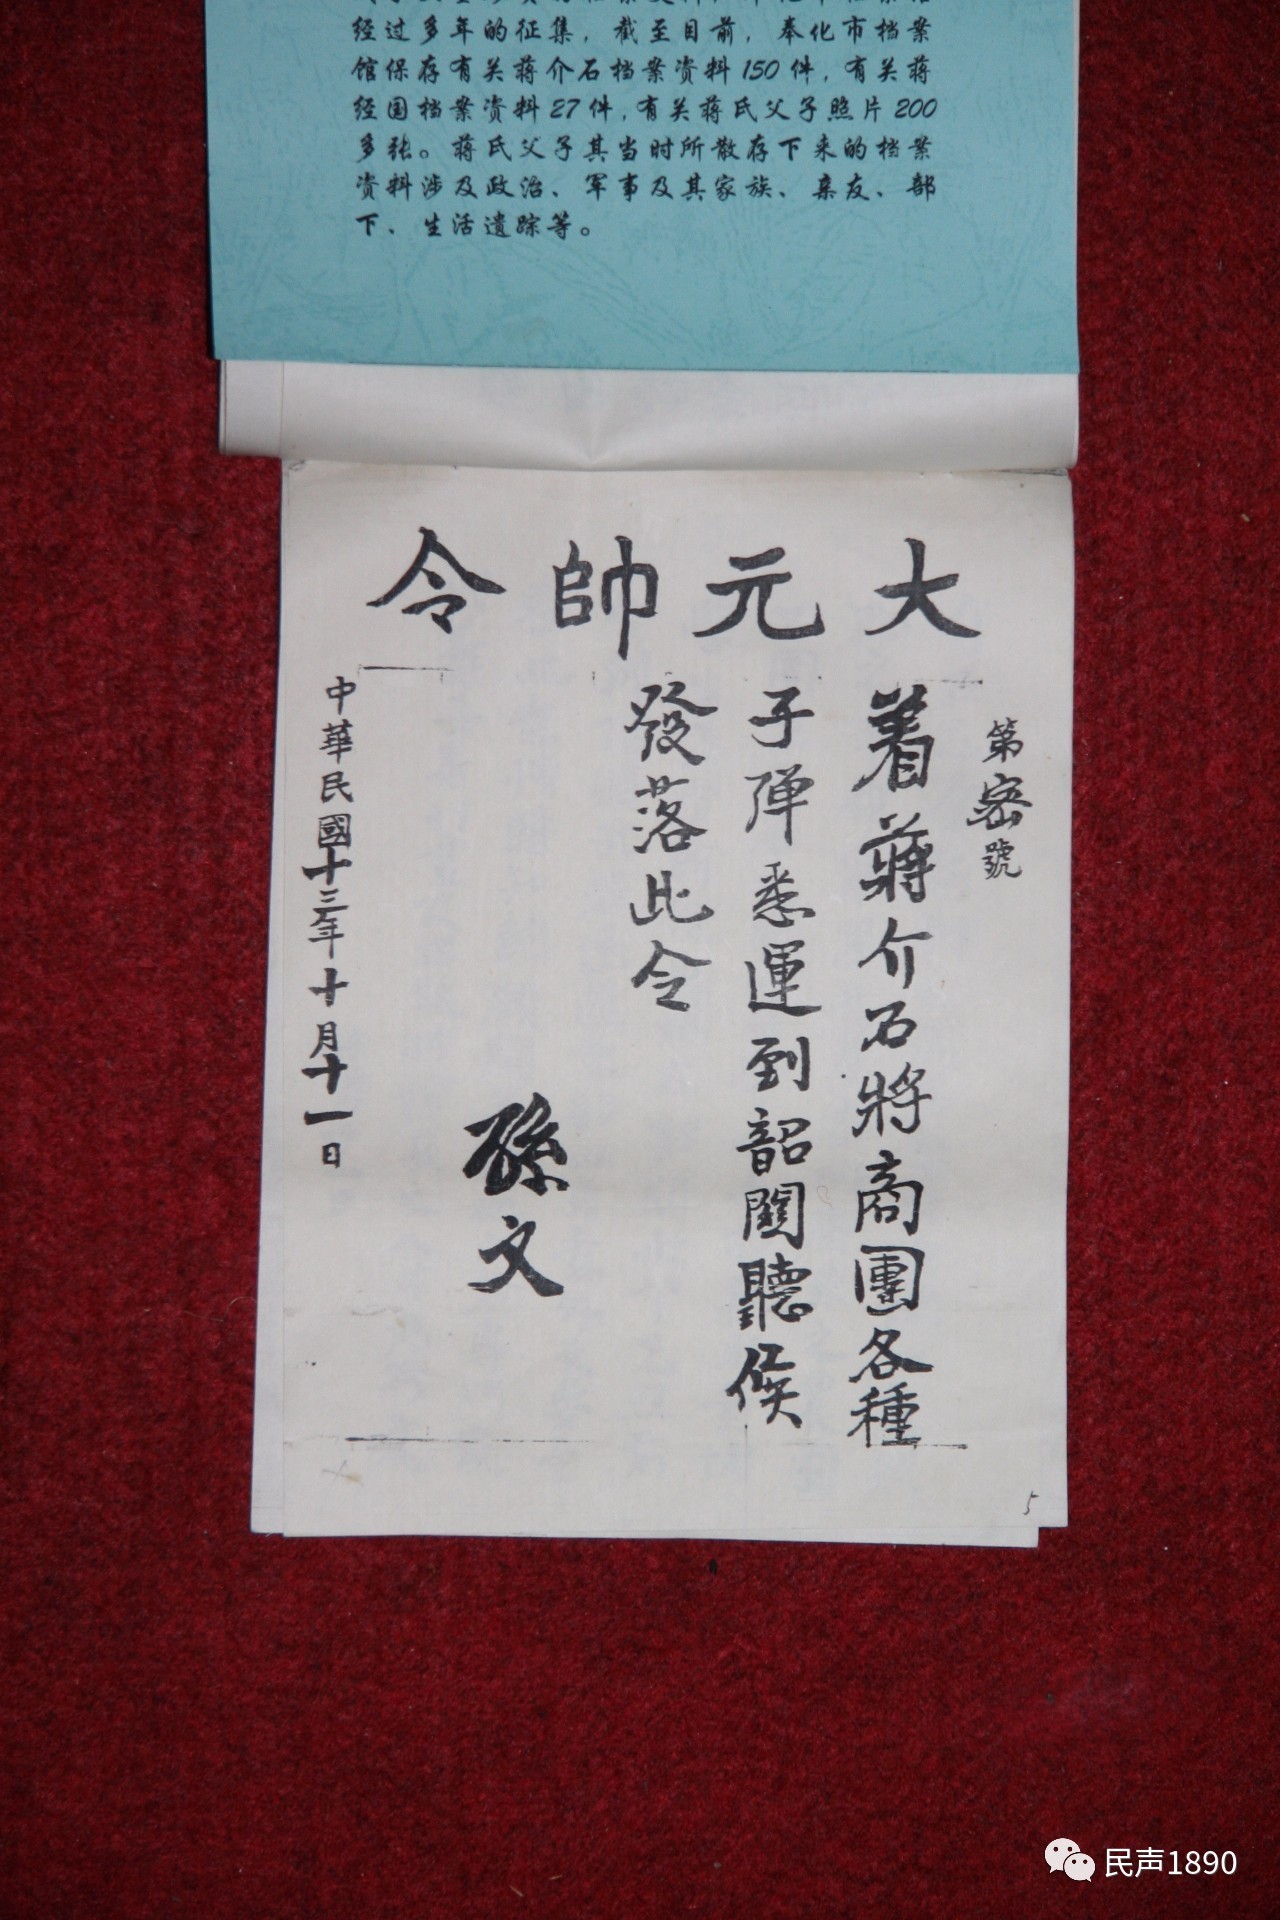 经过多年的征集，截至目前，奉化市档案
馆保存有关蒋介石档案资料150件，有关蒋
经国档案资料27件，有关蒋氏父子照片200
多张。蒋氏父子其当时所散存下来的档案
资料涉及政治、军事及其家族、亲友、部
下、生活遗踪等。
大元帥令
第密號
着蔣介石將商團各種
子彈悉運到韶關聽候
發落此令
孫文
中華民國十三年十月十一日
5
民声1890